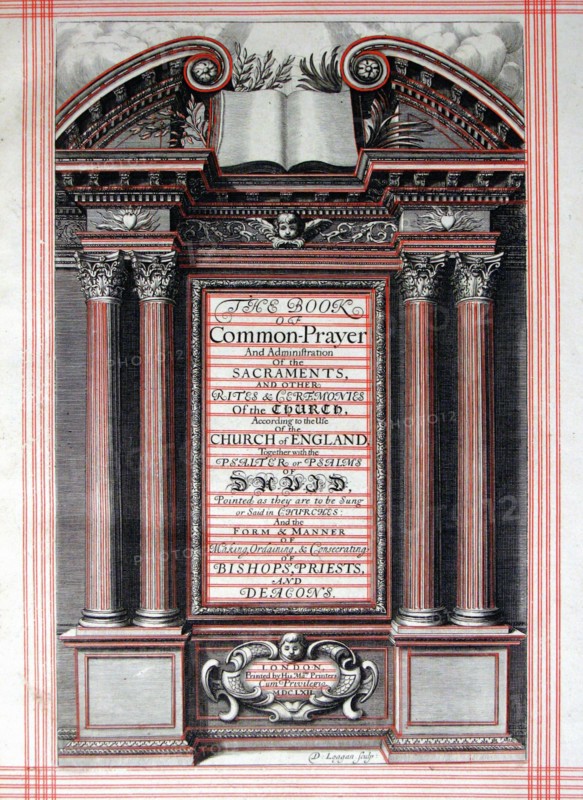 THE BOOK
OF
Common-Prayer
And Adminiſtration
Of the
SACRAMENTS,
AND OTHER
RITES & CEREMONIES
Of the CHURCH,
According to the Uſe
Of the
CHURCH of ENGLAND,
Together with the
PSALTER or PSALMS
OF
DAVID.
Pointed as they are to be Sung
or Said in CHURCHES:
And the
FORM & MANNER
OF
Making, Ordaining, & Conſecrating
OF
BISHOPS, PRIESTS,
AND
DEACONS.
LONDON,
Printed by His Ma.ties Printers
Cum Privilegio.
MDCLXII
D. Loggan ſculp:
PHOTO12
PHOTO12
PHOTO12